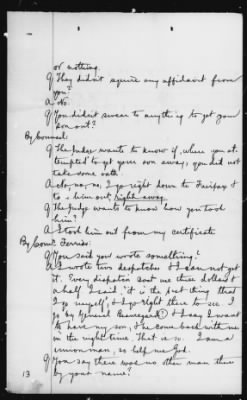 or nothing.
Q They didn't require any affidavit from
you?
A No.
Q You didn't swear to anything to get your
son out?
By Counsel:
Q The Judge wants to know if, when you at-
tempted to get your son away, you did not
take some oath.
A No, no, no; I go right down to Fairfax &
to him out, right away.
Q The Judge wants to know how you took
him?
A I took him out from my certificate
By Com'r Ferriss:
Q You said you wrote something?
A I wrote two despatches & I can not get
it. Every dispatch cost me three dollars &
a half. I said, "it is the best thing that
I go myself", & I go right there to see. I
go by General Beauregard & I say I want
to have my son; & he come back with me
in the right time. That is so. I am a
union man, so help me God.
Q You say there was no other man there
by your name?
13